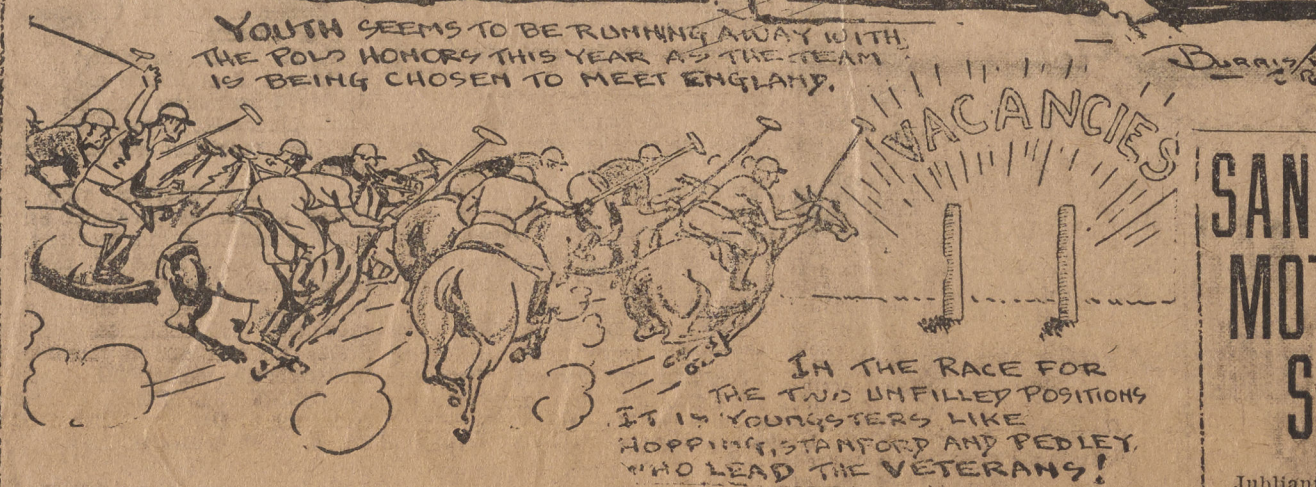 YOUTH SEEMS TO BE RUNNING AWAY WITH
THE POLO HONORS THIS YEAR AS THE TEAM
IS BEING CHOSEN TO MEET ENGLAND.
VACANCIES
IN THE RACE FOR
THE TWO UNFILLED POSITIONS
IT IS YOUNGSTERS LIKE
HOPPING, STANFORD AND PEDLEY,
WHO LEAD THE VETERANS!
BURRIS
SAN
MO
S